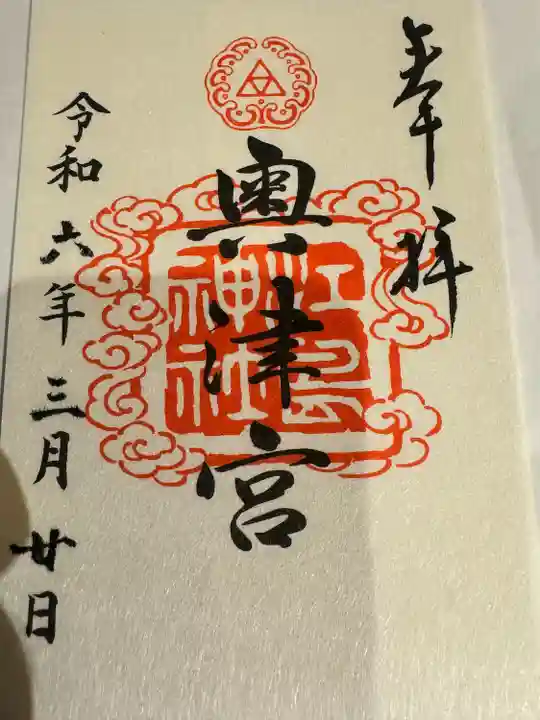 奉拝
奥津宮
江島神社
令和六年三月廿日